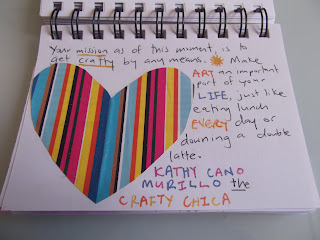 Your mission as of this moment, is to
get crafty by any means. Make
ART an important
part of your
LIFE, just like
eating lunch
EVERY day or
downing a double
latte.
KATHY CANO
MURILLO the
CRAFTY CHICA